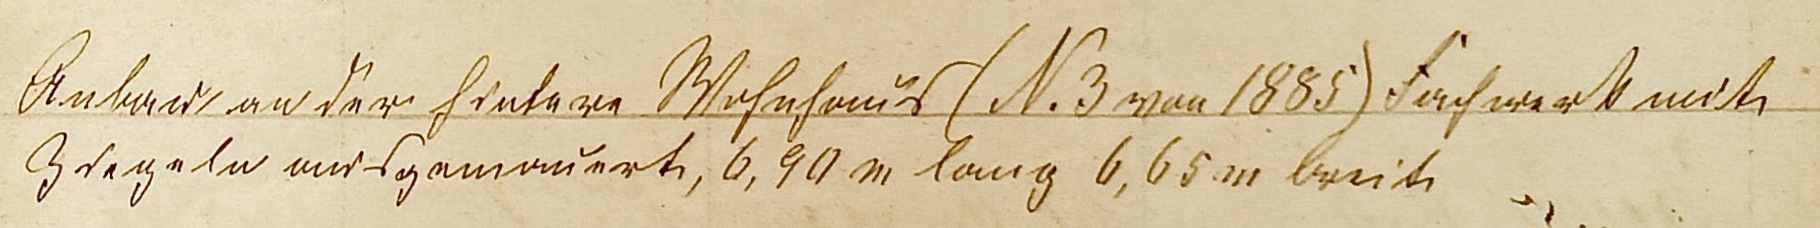 Anbau an der hintere Wohnhaus (N. 3 von 1885) Fachwerk mit
Ziegeln ausgemauert, 6,90 m lang 6,65 m breit